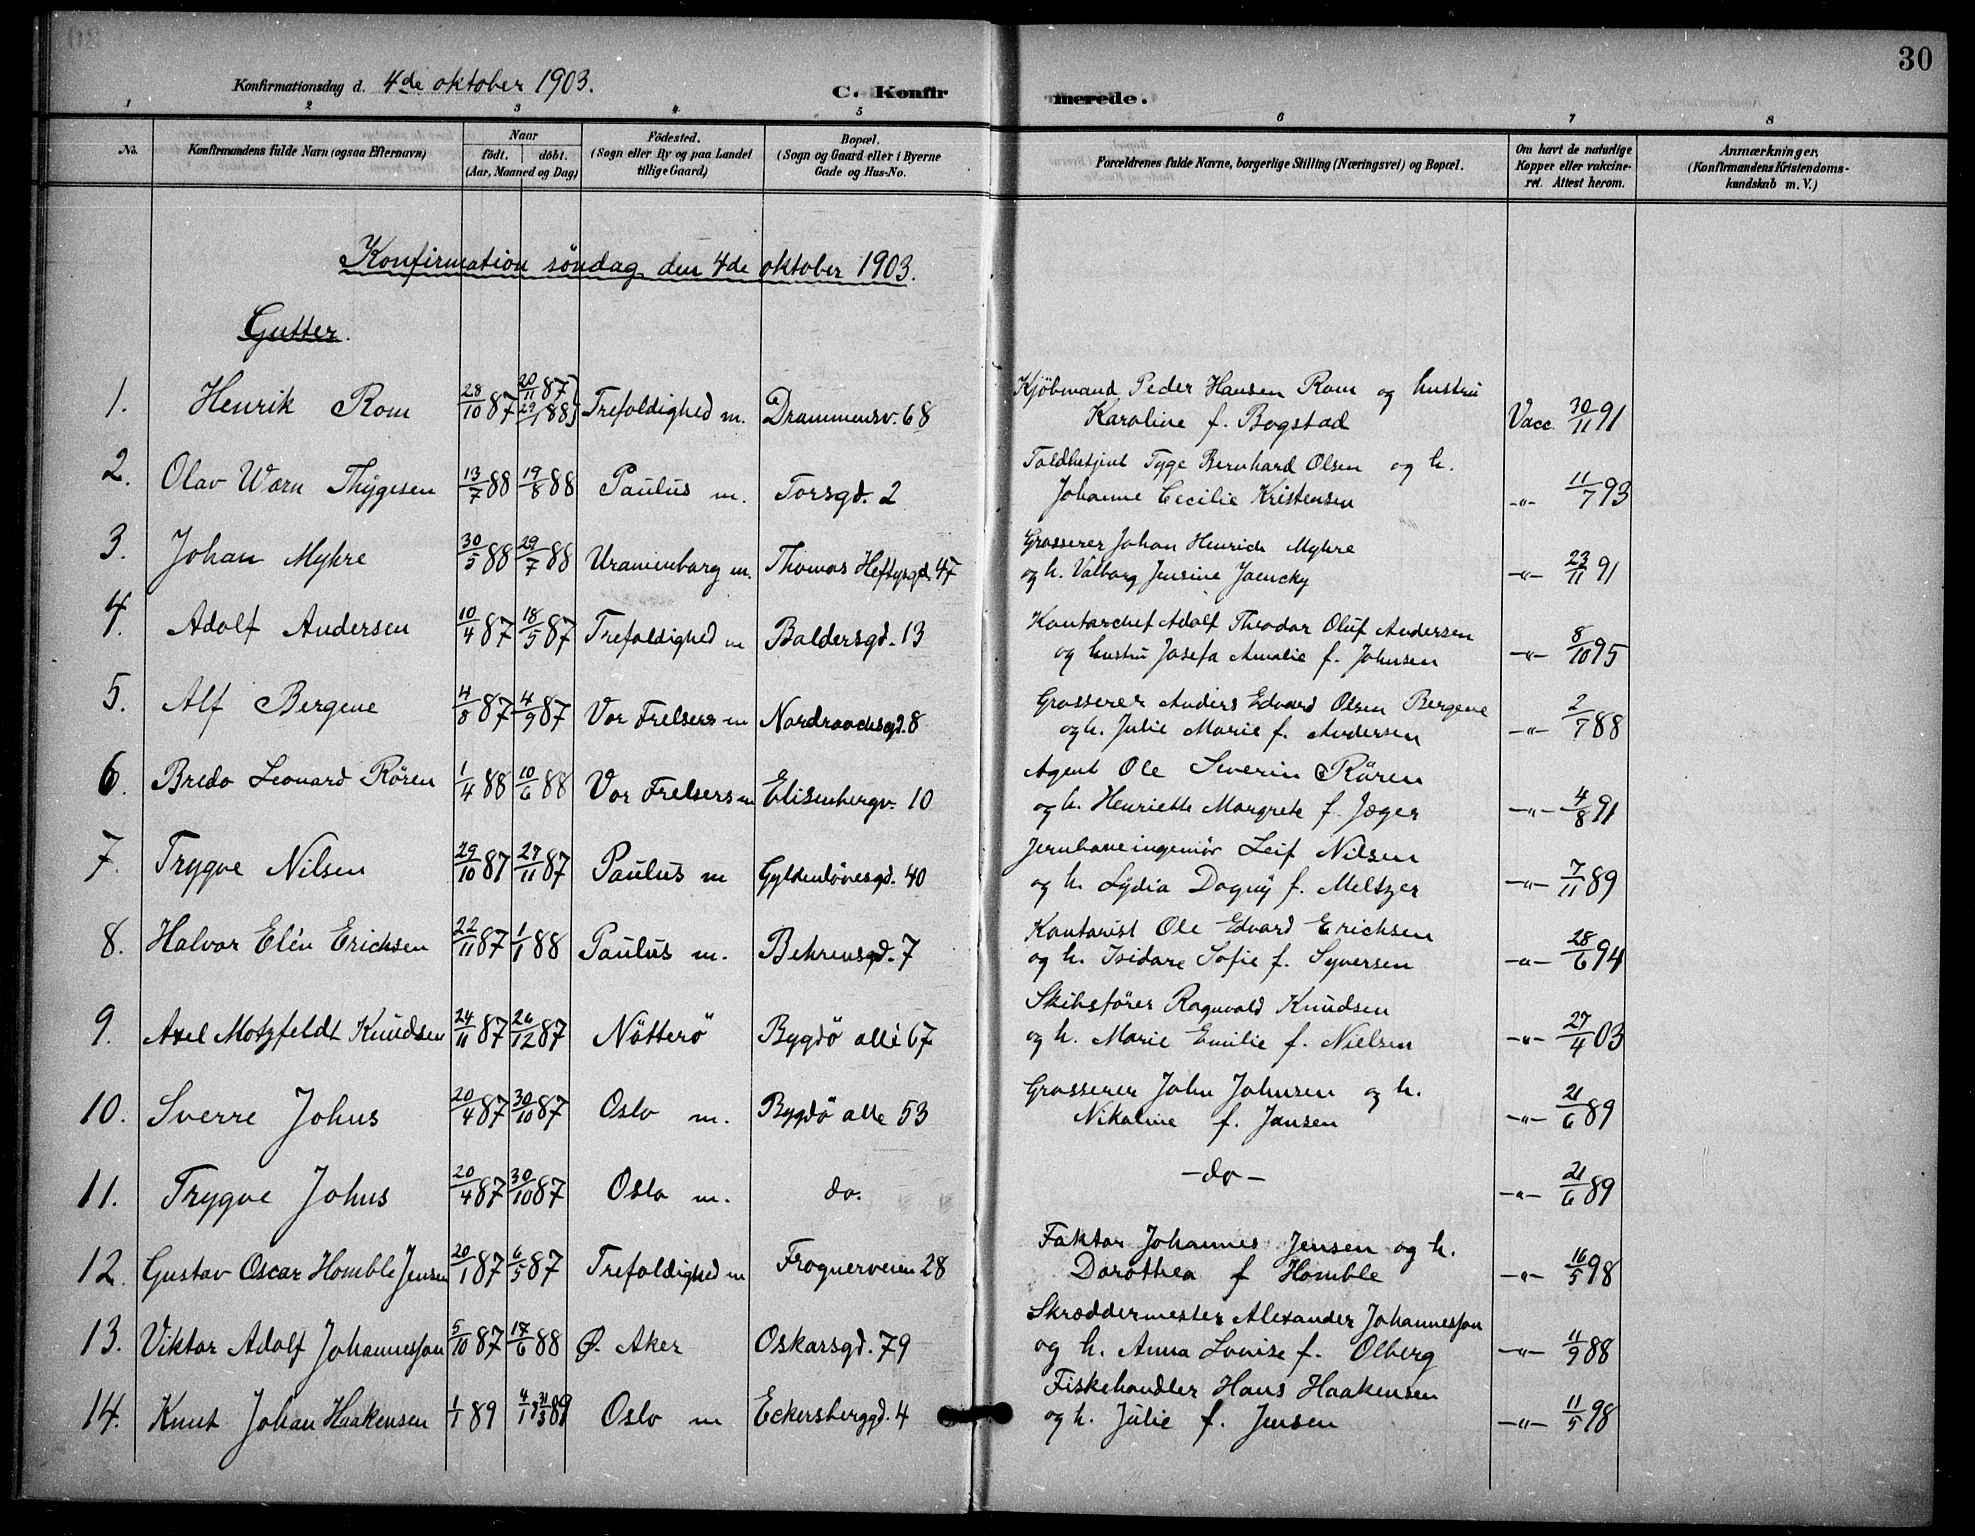 30
Konfirmationsdag d. 4de oktober 1903.
C. Konfirmerede.
1 2 3 4 5 6 7 8
No.
Konfirmandens fulde Navn (ogsaa Efternavn)
Naar
født. døbt.
(Aar, Maaned og Dag)
Fødested.
(Sogn eller By og paa Landet
tillige Gaard)
Bopæl.
(Sogn og Gaard eller i Byerne
Gade og Hus-No.
Forældrenes fulde Navne, borgerlige Stilling (Næringsvei) og Bopæl.
Om havt de naturlige
Kopper eller vakcine-
ret. Attest herom.
Anmærkninger.
(Konfirmandens Kristendoms-
kundskab m. V.)
Konfirmation söndag den 4de oktober 1903.
Gutter.
1. Henrik Rom 28/10 87 20/11 87 29/1 88 Trefoldighed m. Drammensv. 68 Kjöbmand Peder Hansen Rom og hustru
Karoline f. Bogstad Vacc. 30/11 91
2. Olav Wærn Thygesen 13/7 88 19/8 88 Paulus m. Torsgd. 2 Toldbetjent Tyge Bernhard Olsen og h.
Johanne Cecilie Kristensen -"- 11/7 93
3. Johan Myhre 30/5 88 29/7 88 Uranienborg m. Thomas Heftysgd. 47 Grosserer Johan Henrich Myhre
og h. Valborg Jensine Jaencky -"- 23/11 91
4. Adolf Andersen 10/4 87 18/5 87 Trefoldighed m Baldersgd. 13 Kontorchef Adolf Theodor Oluf Andersen
og hustru Josefa Amalie f. Johnsen -"- 8/10 95
5. Alf Bergene 4/8 87 4/9 87 Vor Frelsers m Nordraachsgd. 8 Grosserer Anders Edvard Olsen Bergene
og h. Julie Marie f. Andersen -"- 2/7 88
6. Bredo Leonard Rören 1/4 88 10/6 88 Vor Frelsers m Elisenbergv. 10 Agent Ole Severin Rören
og h. Henriette Margrete f. Jæger -"- 4/8 91
7. Trygve Nilsen 29/10 87 27/11 87 Paulus m Gyldenlövesgd. 40 Jernbaneingeniör Leif Nilsen
og h. Lydia Dagny f. Meltzer -"- 7/11 89
8. Halvor Elén Erichsen 22/11 87 1/1 88 Paulus m. Behrensgd. 7 Kontorist Ole Edvard Erichsen
og h. Isidore Sofie f. Syversen -"- 28/6 94
9. Axel Motzfeldt Knudsen 24/11 87 26/12 87 Nötterö Bygdö allé 67 Skibsförer Ragnvald Knudsen
og h. Marie Emilie f. Nielsen -"- 27/4 03
10. Sverre Johns 20/4 87 30/10 87 Oslo m. Bygdö alle 53 Grosserer John Johnsen og h.
Nikoline f. Jansen -"- 21/6 89
11. Trygve Johns 20/4 87 30/10 87 Oslo m. do. -do- -"- 21/6 89
12. Gustav Oscar Homble Jensen 20/1 87 6/5 87 Trefoldighed m Frognerveien 28 Faktor Johannes Jensen og h.
Dorothea f Homble -"- 16/5 98
13. Viktor Adolf Johannesson 5/10 87 17/6 88 Ø. Aker Oskarsgd. 79 Skræddermester Alexander Johannesson
og h. Anna Lovise f. Olberg -"- 11/9 88
14. Knut Johan Haakensen 1/1 89 4/1 31/3 89 Oslo m Eckersberggd. 4 Fiskehandler Hans Haakensen
og h. Julie f. Jensen -"- 11/5 98